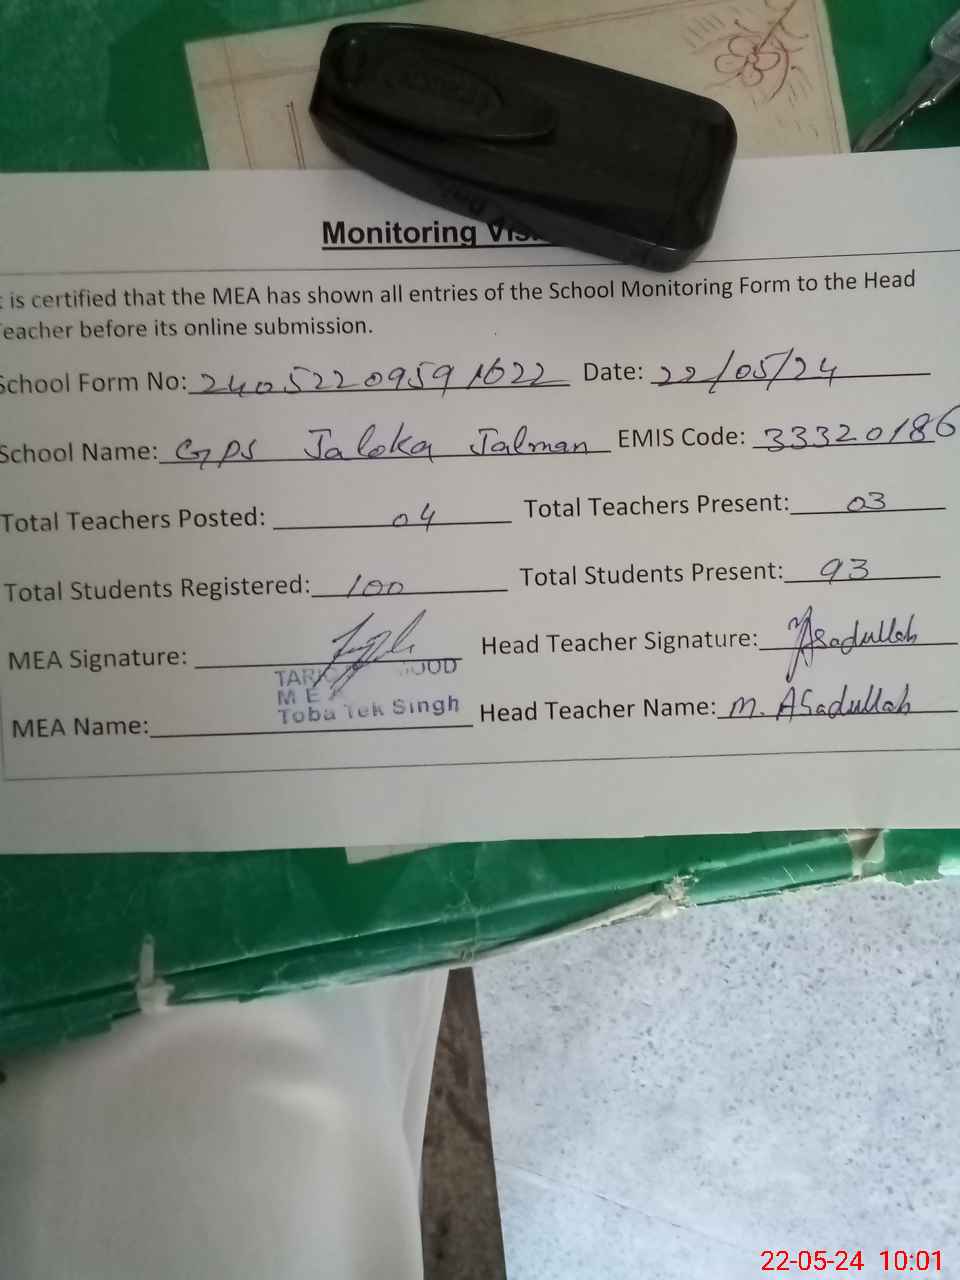 Monitoring
is certified that the MEA has shown all entries of the School Monitoring Form to the Head
eacher before its online submission.
School Form No: 2405220959 1622 Date: 22/05/24
School Name: GPS Jaloka Jalman EMIS Code: 33320186
Total Teachers Posted: 04 Total Teachers Present: 03
Total Students Registered: 100 Total Students Present: 93
MEA Signature: Head Teacher Signature: Asadullah
MEA
Toba Tek Singh
MEA Name: Head Teacher Name: M. ASadullah
22-05-24 10:01